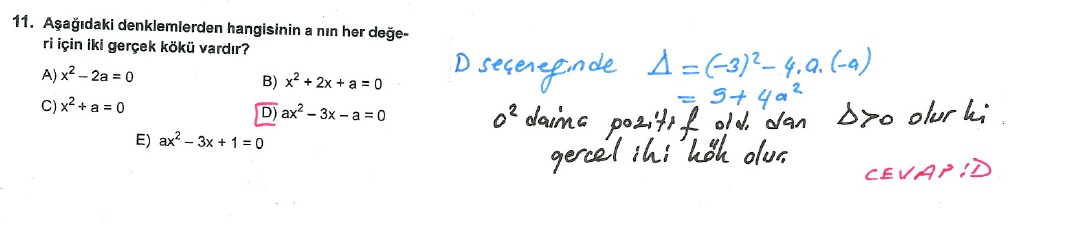 11. Aşağıdaki denklemlerden hangisinin a nın her değe-
ri için iki gerçek kökü vardır?
A) x² – 2a = 0
B) x² + 2x + a = 0
C) x² + a = 0
D) ax² – 3x – a = 0
E) ax² – 3x + 1 = 0
D seçeneğinde Δ = (-3)² - 4.a.(-a)
= 9 + 4a²
a² daima pozitif old. dan Δ>0 olur ki
gerçel iki kök olur.
CEVAP: D